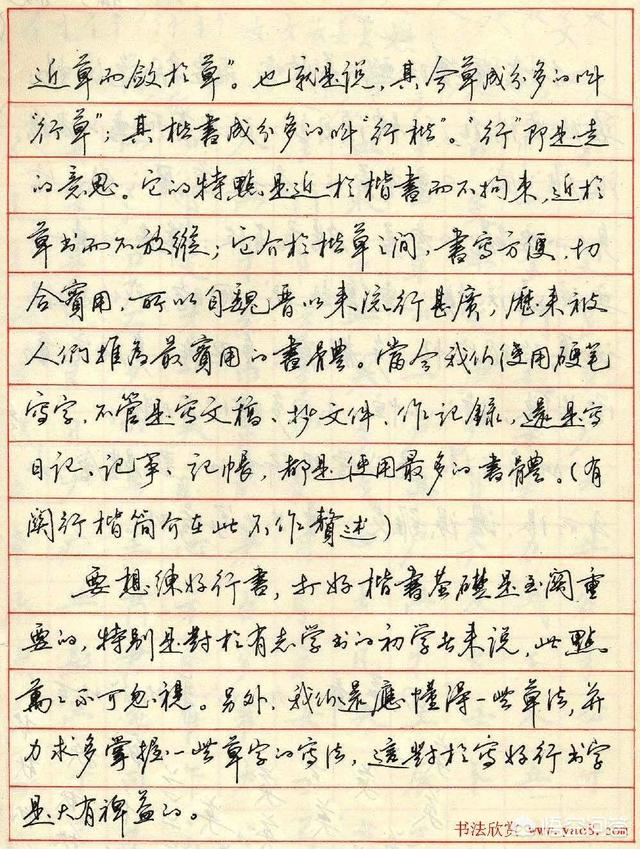 近草而敛於草”。也就是说，其含草成分多的叫
“行草”；其楷書成分多的叫“行楷”。“行”即是走
的意思。它的特點是近於楷書而不拘束，近於
草书而不放縱；它介於楷草之间，書寫方便，切
合實用，所以自魏晋以来流行甚廣，歷来被
人們推為最實用的書體。當今我们使用硬笔
寫字，不管是寫文稿、抄文件、作记録，還是寫
日记、记事、记帳，都是使用最多的書體。（有
関行楷简介在此不作贅述）
要想練好行書，打好楷書基礎是至関重
要的，特别是對於有志学书的初学者来说，此點
萬萬不可忽視。另外，我们還應懂得一些草法，并
力求多掌握一些草字的寫法，這對於寫好行书字
是大有裨益的。
书法欣赏 www.yac8.com
悟空问答